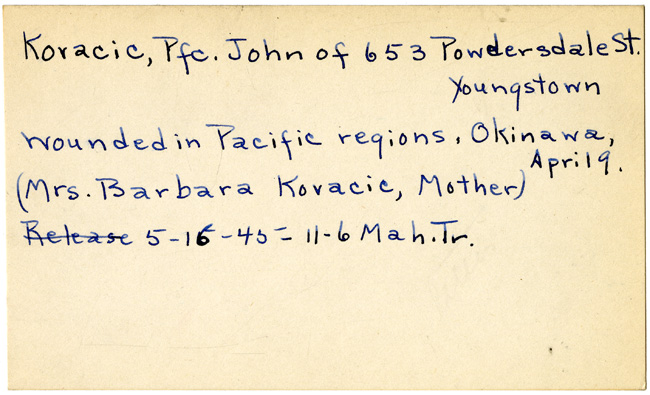 Kovacic, Pfc. John of 653 Powdersdale St.
Youngstown
wounded in Pacific regions, Okinawa,
April 9.
(Mrs. Barbara Kovacic, Mother)
Release 5-16-45 = 11-6 Mah. Tr.